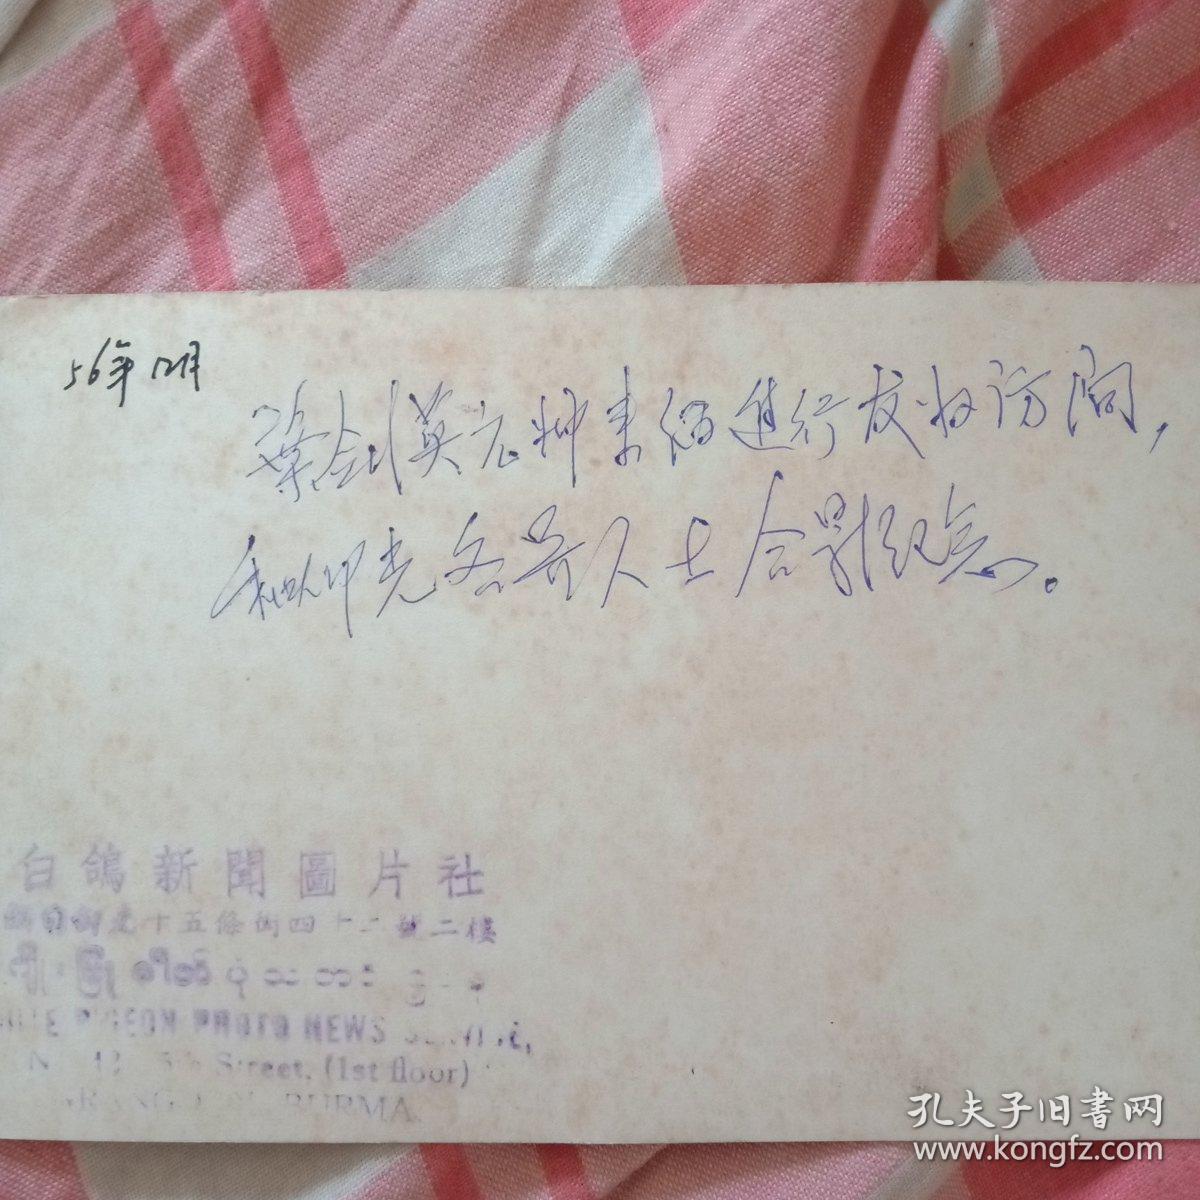 56年12月
葉剑英元帅来缅进行友好访问，
和仰光各界人士合影纪念。
白鴿新聞圖片社
緬甸仰光十五條街四十二號二樓
PIGEON PHOTO NEWS
Street, (1st floor)
BURMA.
孔夫子旧書网
www.kongfz.com